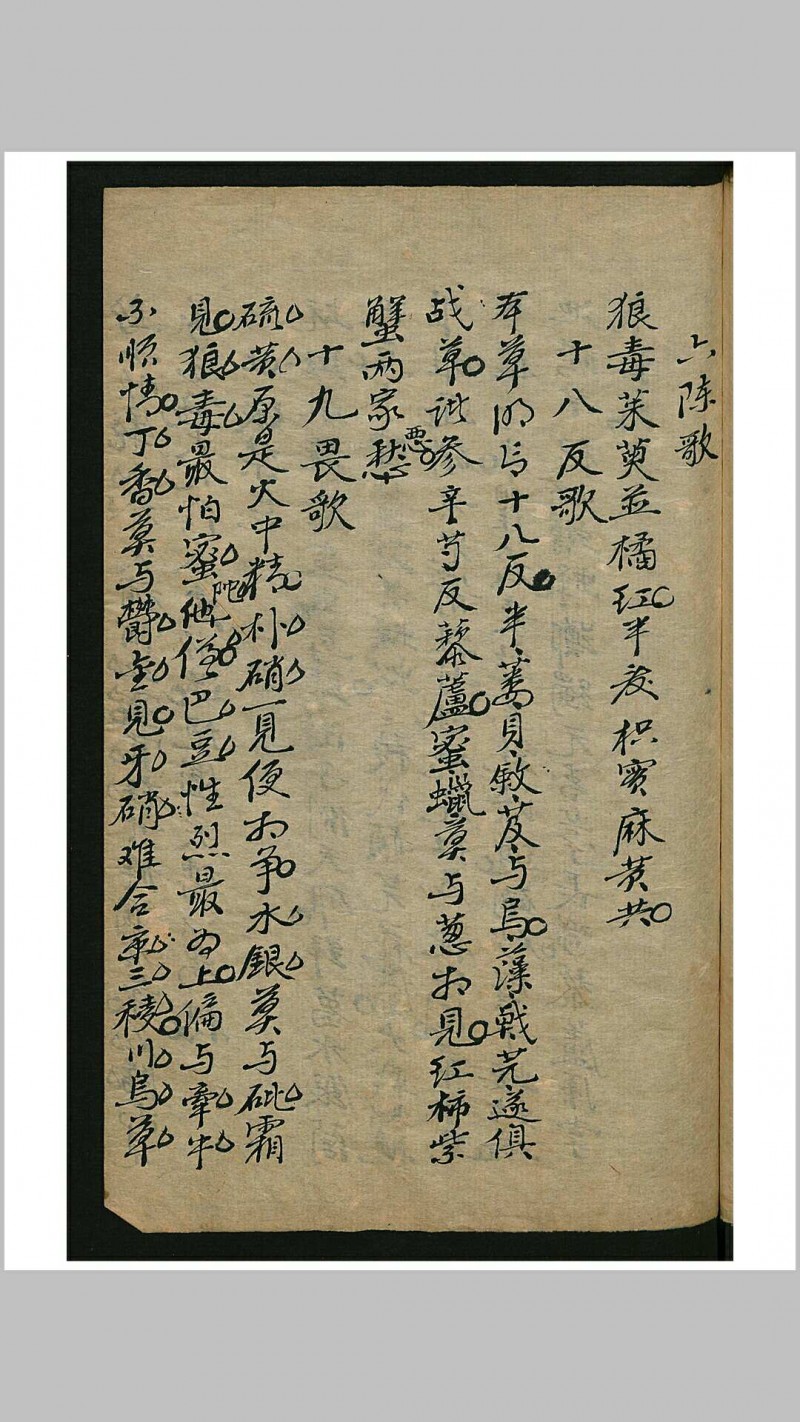 六陈歌
狼毒茱萸並橘红半夏枳實麻黄共
十八反歌
本草明言十八反半蒌貝蔹芨与烏藻戟芫遂俱
战草诸參辛芍反藜蘆蜜蠟莫与葱相見红柿紫
蟹两家愁惡
十九畏歌
硫黄原是火中精朴硝一見便相争水銀莫与砒霜
見狼毒最怕蜜陀僧巴豆性烈最为上偏与牽牛
不順情丁香莫与鬱金見牙硝难合京三稜川烏草